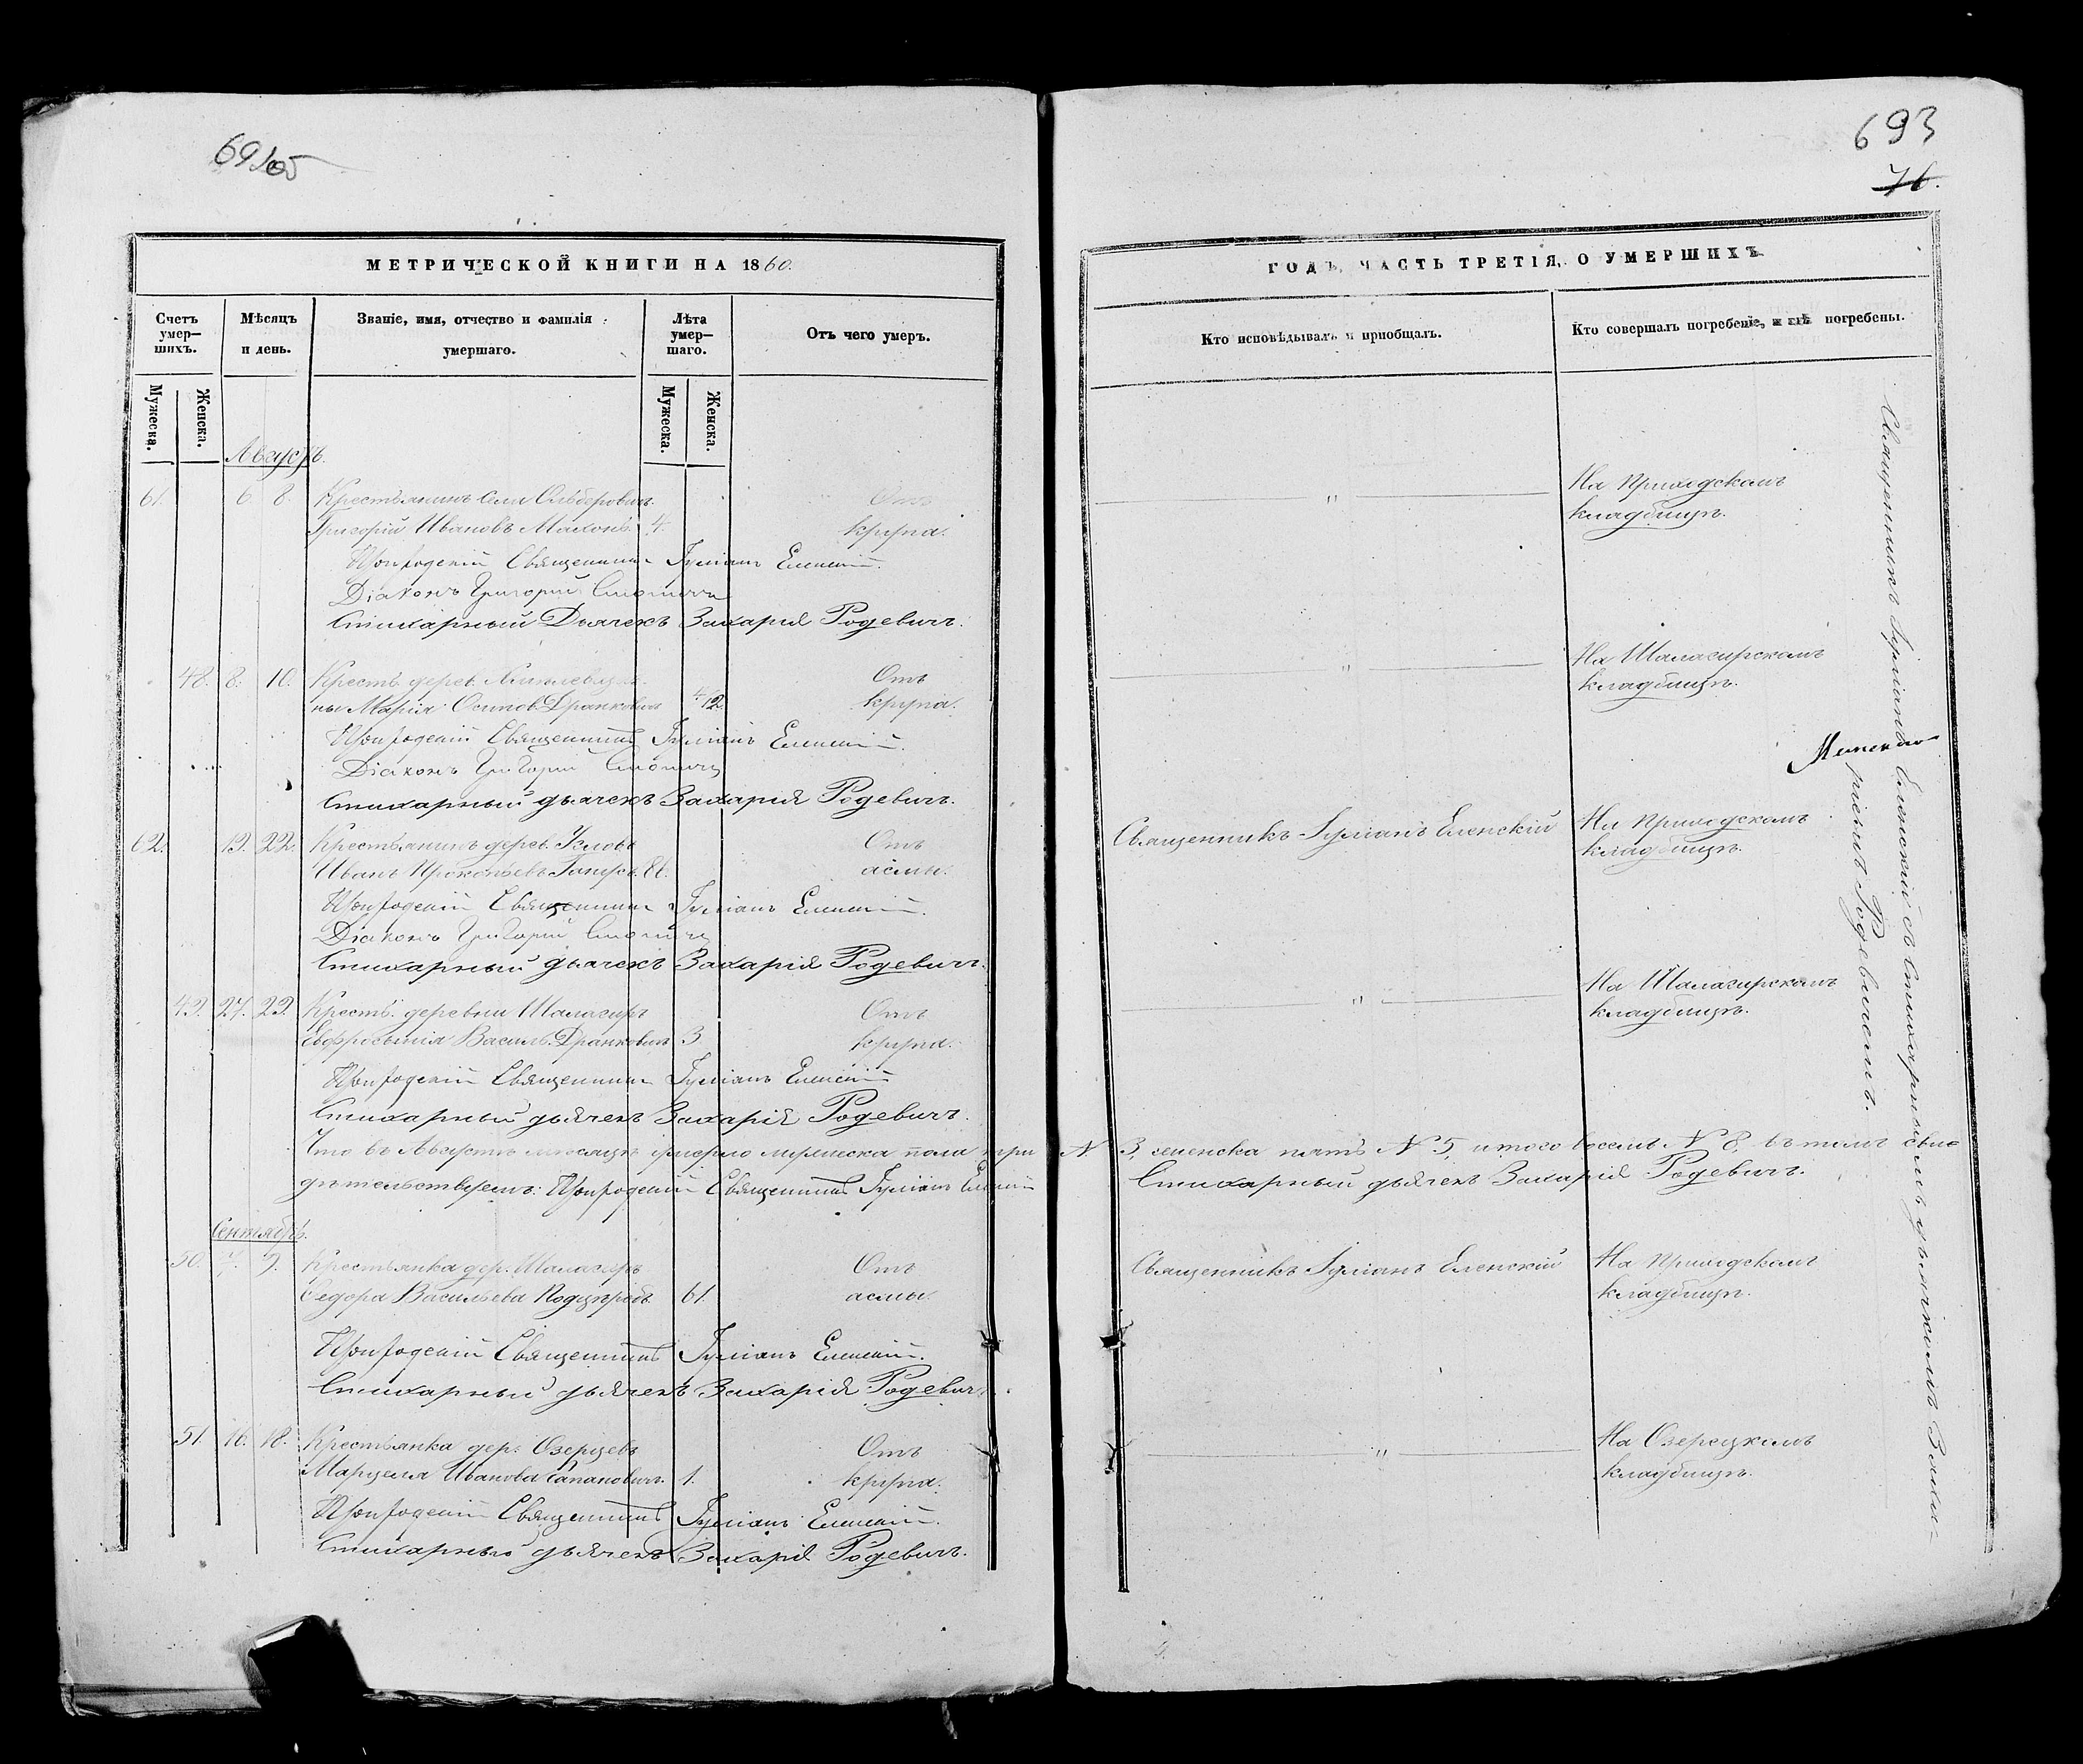 692об
МЕТРИЧЕСКОЙ КНИГИ НА 1860.
Счетъ умер—шихъ.
Мѣсяцъ и день.
Званіе, имя, отчество и фамилія умершаго.
Лѣта умер—шаго.
Отъ чего умеръ.
Мужеска.
Женска.
Мужеска.
Женска.
Августъ.
61. 6 8. Крестьянинъ села Ольберовичъ Отъ
Григорій Ивановъ 4. крупа.
Приходскій Священникъ Іуліанъ Еленскій.
Діаконъ Григорій
Стихарный Дьячекъ Захарія Родевичъ.
48. 8. 10. Крестьян. дерев. Отъ
Марія Осипов. Дранковичъ 4/12 крупа.
Приходскій Священникъ Іуліанъ Еленскій.
Діаконъ Григорій
Стихарный дьячекъ Захарія Родевичъ.
62. 19. 22. Крестьянинъ дерев. Отъ
Иванъ Прокопьевъ 86. асмы.
Приходскій Священникъ Іуліанъ Еленскій.
Діаконъ Григорій
Стихарный дьячекъ Захарія Родевичъ.
49. 27. 29. Кресть. деревни Шалагиръ Отъ
Евфросинія Василь. Дранковичъ 3 крупа.
Приходскій Священникъ Іуліанъ Еленскій
Стихарный дьячекъ Захарія Родевичъ.
Что въ Августѣ мѣсяцѣ умерло мужеска пола три N 3, женска пять N 5, итого восемь N 8, въ томъ сви-
дѣтельствуемъ: Приходскій Священникъ Іуліанъ Еленскій Стихарный дьячекъ Захарія Родевичъ.
Сентябрь.
50. 7. 9. Крестьянка дер. Шалагиръ Отъ
Ѳедора Васильева 61. асмы.
Приходскій Священникъ Іуліанъ Еленскій.
Стихарный дьячекъ Захарія Родевичъ.
51. 16. 18. Крестьянка дер. Озерцевъ Отъ
Марцеля Иванова 1. крупа.
Приходскій Священникъ Іуліанъ Еленскій.
Стихарный дьячекъ Захарія Родевичъ.
693
76.
ГОДЪ, ЧАСТЬ ТРЕТІЯ, О УМЕРШИХЪ
Кто исповѣдывалъ и пріобщалъ.
Кто совершалъ погребеніе, и гдѣ погребены.
" На Приходскомъ
кладбищѣ.
" На Шалагирскомъ
кладбищѣ.
Священникъ Іуліанъ Еленскій На Приходскомъ
кладбищѣ.
" На Шалагирскомъ
кладбищѣ.
Священникъ Іуліанъ Еленскій На Приходскомъ
кладбищѣ.
" На Озерецкомъ
кладбищѣ.
Священникъ Іуліанъ Еленскій съ Стихарнымъ дьячкомъ Заха-
ріемъ Родевичемъ.